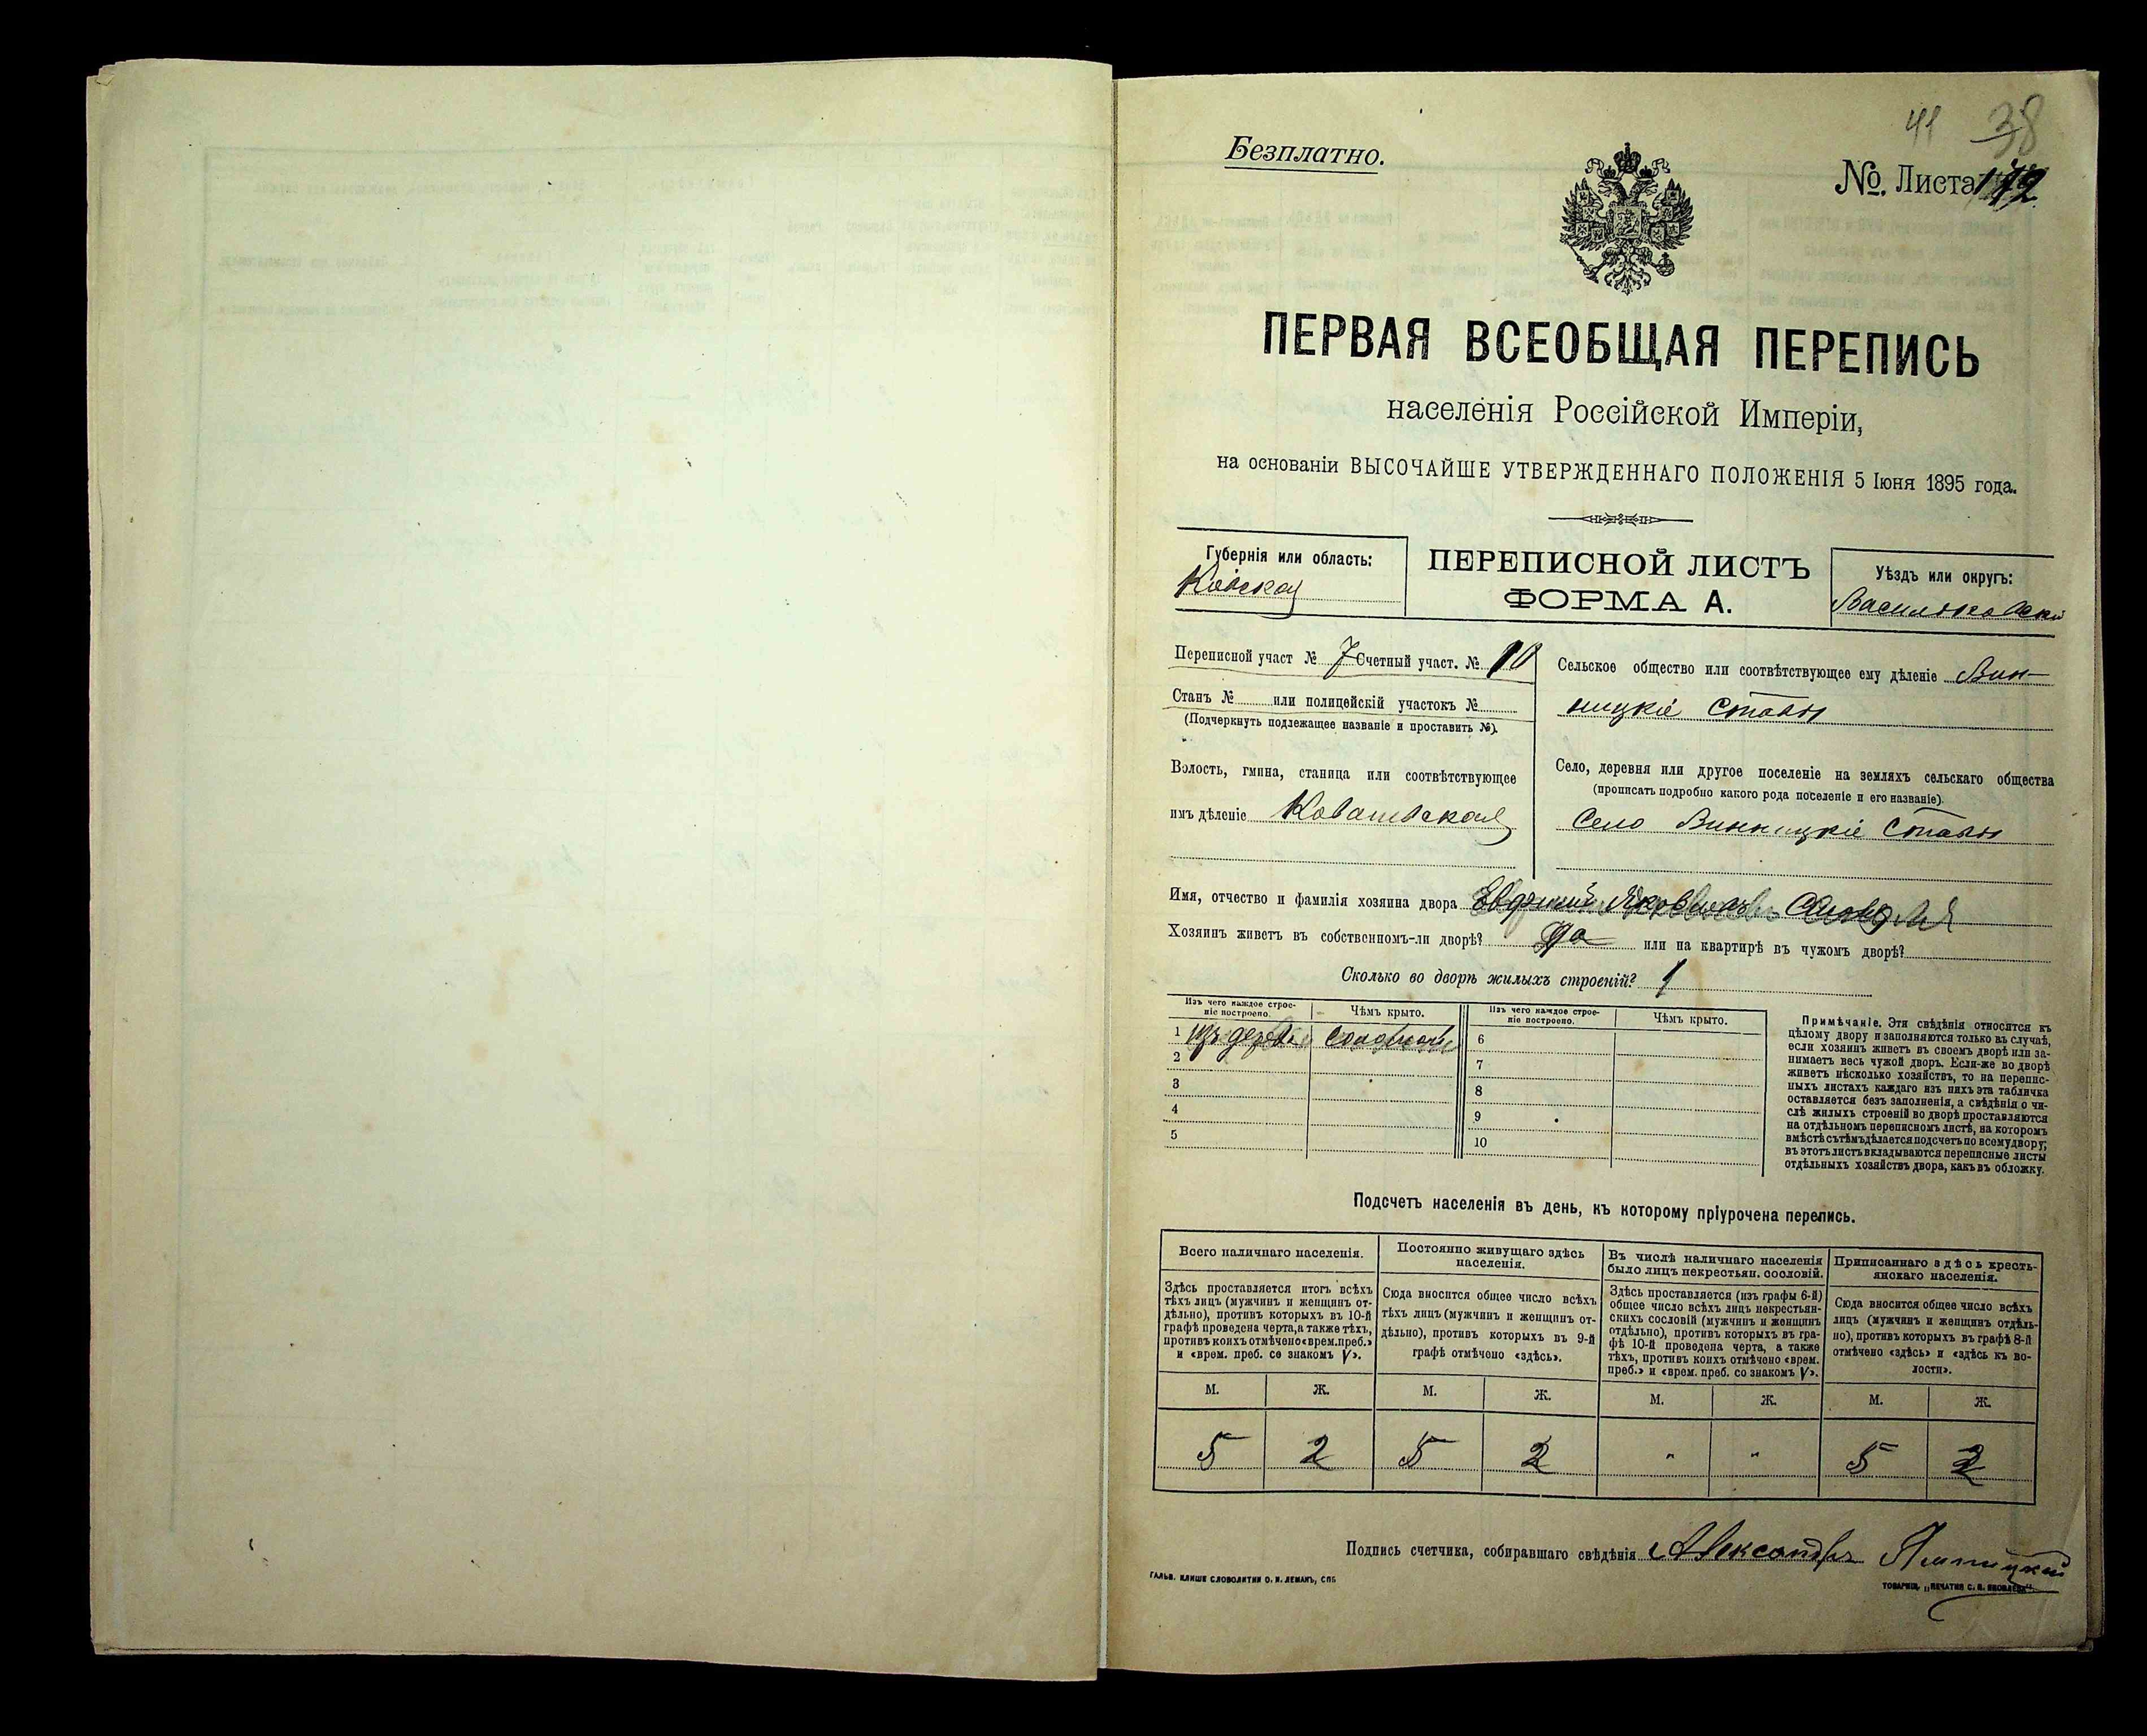 41 38
Безплатно.
№ Листа 172
ПЕРВАЯ ВСЕОБЩАЯ ПЕРЕПИСЬ
населенія Россійской Имперіи,
на основаніи ВЫСОЧАЙШЕ УТВЕРЖДЕННАГО ПОЛОЖЕНІЯ 5 Іюня 1895 года.
Губернія или область:
Кіевская
ПЕРЕПИСНОЙ ЛИСТЪ
ФОРМА А.
Уѣздъ или округъ:
Васильковскій
Переписной участ № 7 Счетный участ. № 10
Станъ № или полицейскій участокъ №
(Подчеркнуть подлежащее названіе и проставить №).
Волость, гмина, станица или соотвѣтствующее
имъ дѣленіе Ковшеватская
Сельское общество или соотвѣтствующее ему дѣленіе Вин-
ницкіе Ставы
Село, деревня или другое поселеніе на земляхъ сельскаго общества
(прописать подробно какого рода поселеніе и его названіе).
Село Винницкіе Ставы
Имя, отчество и фамилія хозяина двора Евфимій Яковлевъ
Хозяинъ живетъ въ собственномъ-ли дворѣ? Да или на квартирѣ въ чужомъ дворѣ?
Сколько во дворѣ жилыхъ строеній? 1
Изъ чего каждое строе-
ніе построено.
Чѣмъ крыто.
Изъ чего каждое строе-
ніе построено.
Чѣмъ крыто.
1 изъ дерева соломою 6
2 7
3 8
4 9
5 10
Примѣчаніе. Эти свѣдѣнія относятся къ
цѣлому двору и заполняются только въ случаѣ,
если хозяинъ живетъ въ своемъ дворѣ или за-
нимаетъ весь чужой дворъ. Если-же во дворѣ
живетъ нѣсколько хозяйствъ, то на перепис-
ныхъ листахъ каждаго изъ нихъ эта табличка
оставляется безъ заполненія, а свѣдѣнія о чи-
слѣ жилыхъ строеній во дворѣ проставляются
на отдѣльномъ переписномъ листѣ, на которомъ
вмѣстѣ съ тѣмъ дѣлается подсчетъ по всему двору;
въ этотъ листъ вкладываются переписные листы
отдѣльныхъ хозяйствъ двора, какъ въ обложку.
Подсчетъ населенія въ день, къ которому пріурочена перепись.
Всего наличнаго населенія.
Здѣсь проставляется итогъ всѣхъ
тѣхъ лицъ (мужчинъ и женщинъ от-
дѣльно), противъ которыхъ въ 10-й
графѣ проведена черта, а также тѣхъ,
противъ коихъ отмѣчено «врем. преб.»
и «врем. преб. со знакомъ V».
Постоянно живущаго здѣсь
населенія.
Сюда вносится общее число всѣхъ
тѣхъ лицъ (мужчинъ и женщинъ от-
дѣльно), противъ которыхъ въ 9-й
графѣ отмѣчено «здѣсь».
Въ числѣ наличнаго населенія
было лицъ некрестьян. сословій.
Здѣсь проставляется (изъ графы 6-й)
общее число всѣхъ лицъ некрестьян-
скихъ сословій (мужчинъ и женщинъ
отдѣльно), противъ которыхъ въ гра-
фѣ 10-й проведена черта, а также
тѣхъ, противъ коихъ отмѣчено «врем.
преб.» и «врем. преб. со знакомъ V».
Приписаннаго здѣсь кресть-
янскаго населенія.
Сюда вносится общее число всѣхъ
лицъ (мужчинъ и женщинъ отдѣль-
но), противъ которыхъ въ графѣ 8-й
отмѣчено «здѣсь» и «здѣсь къ во-
лости».
М. Ж. М. Ж. М. Ж. М. Ж.
5 2 5 2 " " 5 2
Подпись счетчика, собиравшаго свѣдѣнія Александръ
ГАЛЬВ. КЛИШЕ СЛОВОЛИТНИ О. И. ЛЕМАНЪ, СПБ
ТОВАРИЩ. „ПЕЧАТНЯ С. П. ЯКОВЛЕВА“